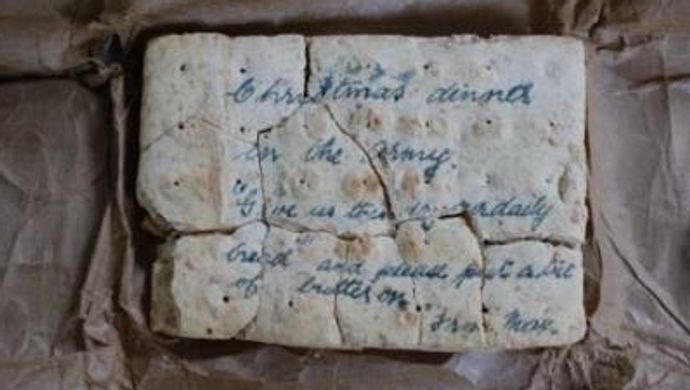 Christmas dinner
in the army.
"Give us this day our daily
bread" and please put a bit
of butter on
From